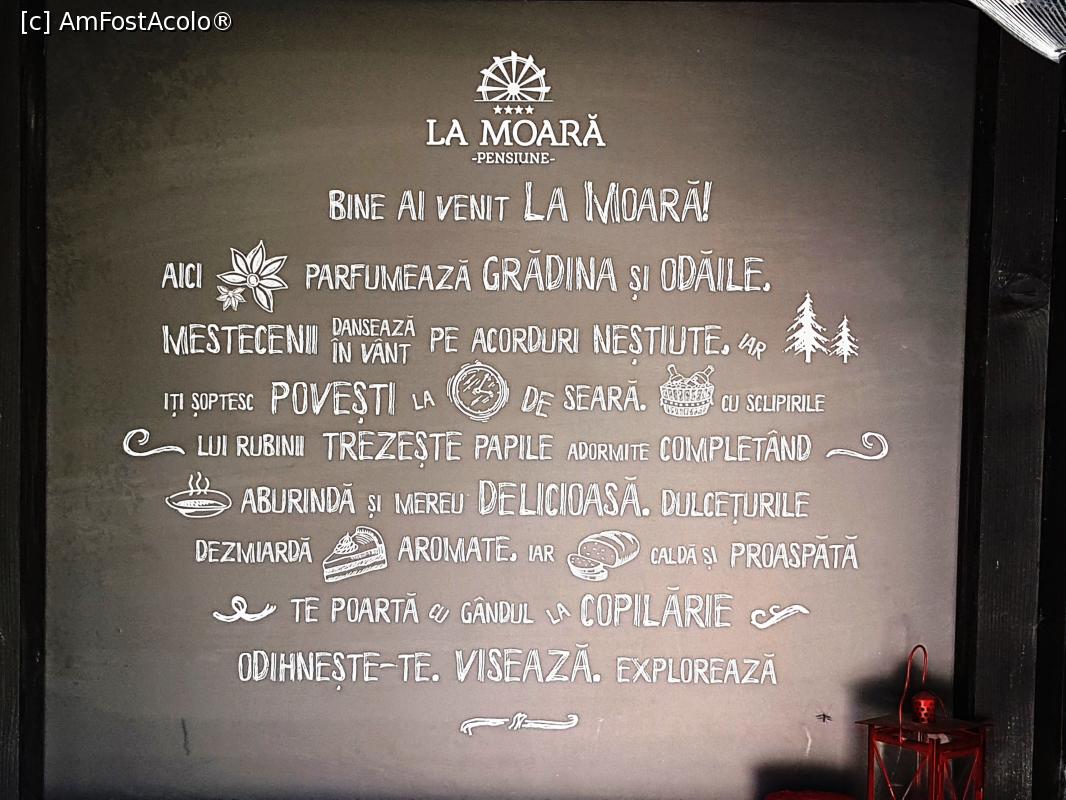 [c] AmFostAcolo®
LA MOARĂ
-PENSIUNE-
BINE AI VENIT LA MOARĂ!
AICI PARFUMEAZĂ GRĂDINA ȘI ODĂILE,
MESTECENII DANSEAZĂ ÎN VÂNT PE ACORDURI NEȘTIUTE, IAR
IȚI ȘOPTESC POVEȘTI LA DE SEARĂ. CU SCLIPIRILE
LUI RUBINII TREZEȘTE PAPILE ADORMITE COMPLETÂND
ABURINDĂ ȘI MEREU DELICIOASĂ. DULCEȚURILE
DEZMIARDĂ AROMATE, IAR CALDĂ ȘI PROASPĂTĂ
TE POARTĂ CU GÂNDUL LA COPILĂRIE
ODIHNEȘTE-TE. VISEAZĂ. EXPLOREAZĂ